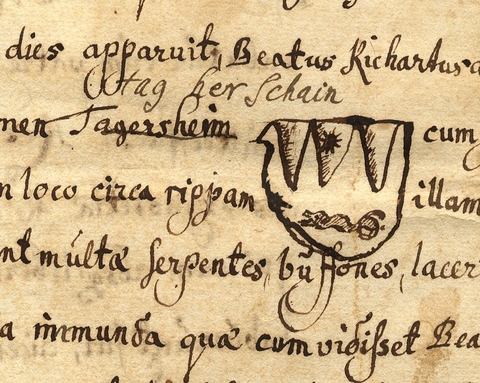 dies apparuit, Beatus Richartus a
tag her Schain
men Tagersheim cum
n loco circa rippam illam
nt multæ serpentes, buffones, lacer
a immunda quæ cum vidisset Bea